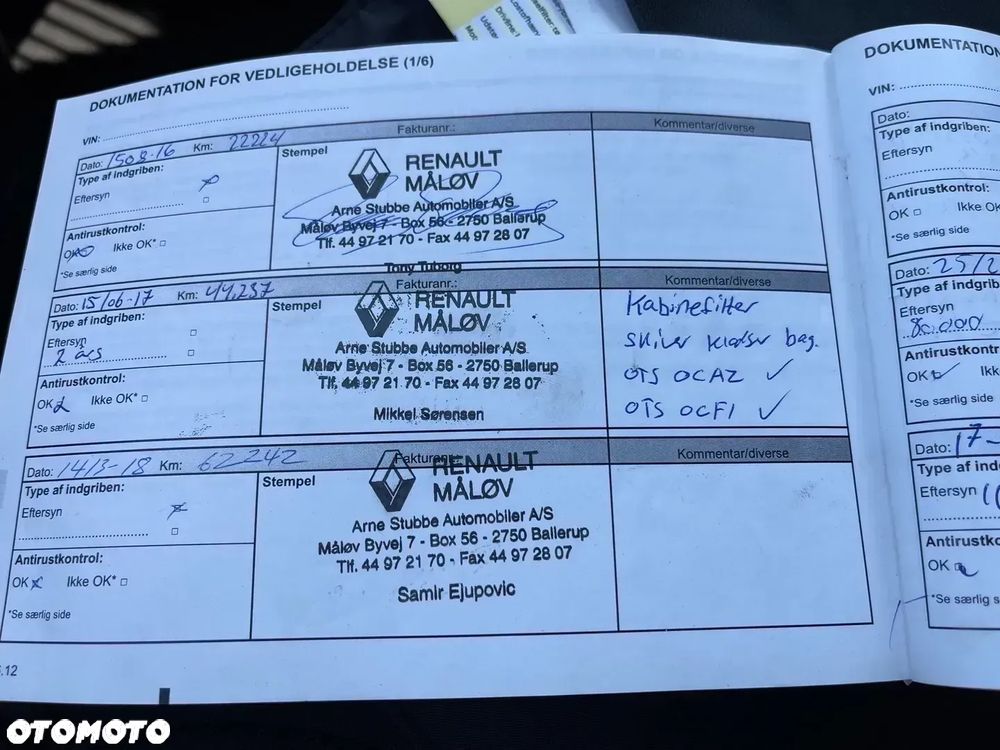 DOKUMENTATION FOR VEDLIGEHOLDELSE (1/6)
VIN:
Dato: 1508-16 Km: 22224
Fakturanr.:
Kommentar/diverse
Type af indgriben:
Eftersyn
Antirustkontrol:
OK Ikke OK*
*Se særlig side
Stempel
RENAULT
MÅLØV
Arne Stubbe Automobiler A/S
Måløv Byvej 7 - Box 56 - 2750 Ballerup
Tlf. 44 97 21 70 - Fax 44 97 28 07
Tony Tuborg
Dato: 15/06-17 Km: 44.257
Fakturanr.:
Kommentar/diverse
Type af indgriben:
Eftersyn
2 års
Antirustkontrol:
OK Ikke OK*
*Se særlig side
Stempel
RENAULT
MÅLØV
Arne Stubbe Automobiler A/S
Måløv Byvej 7 - Box 56 - 2750 Ballerup
Tlf. 44 97 21 70 - Fax 44 97 28 07
Mikkel Sørensen
Kabinefilter
skiver klodser bag.
OTS OCAZ ✓
OTS OCF1 ✓
Dato: 14/3-18 Km: 62242
Fakturanr.:
Kommentar/diverse
Type af indgriben:
Eftersyn
Antirustkontrol:
OK Ikke OK*
*Se særlig side
Stempel
RENAULT
MÅLØV
Arne Stubbe Automobiler A/S
Måløv Byvej 7 - Box 56 - 2750 Ballerup
Tlf. 44 97 21 70 - Fax 44 97 28 07
Samir Ejupovic
.12
DOKUMENTATION
VIN:
Dato:
Type af indgriben:
Eftersyn
Antirustkontrol:
OK Ikke OK
*Se særlig side
Dato: 25/2
Type af indgrib
Eftersyn
80.000
Antirustkontro
OK Ikk
*Se særlig side
Dato: 17-
Type af ind
Eftersyn
Antirustko
OK
*Se særlig s
OTOMOTO